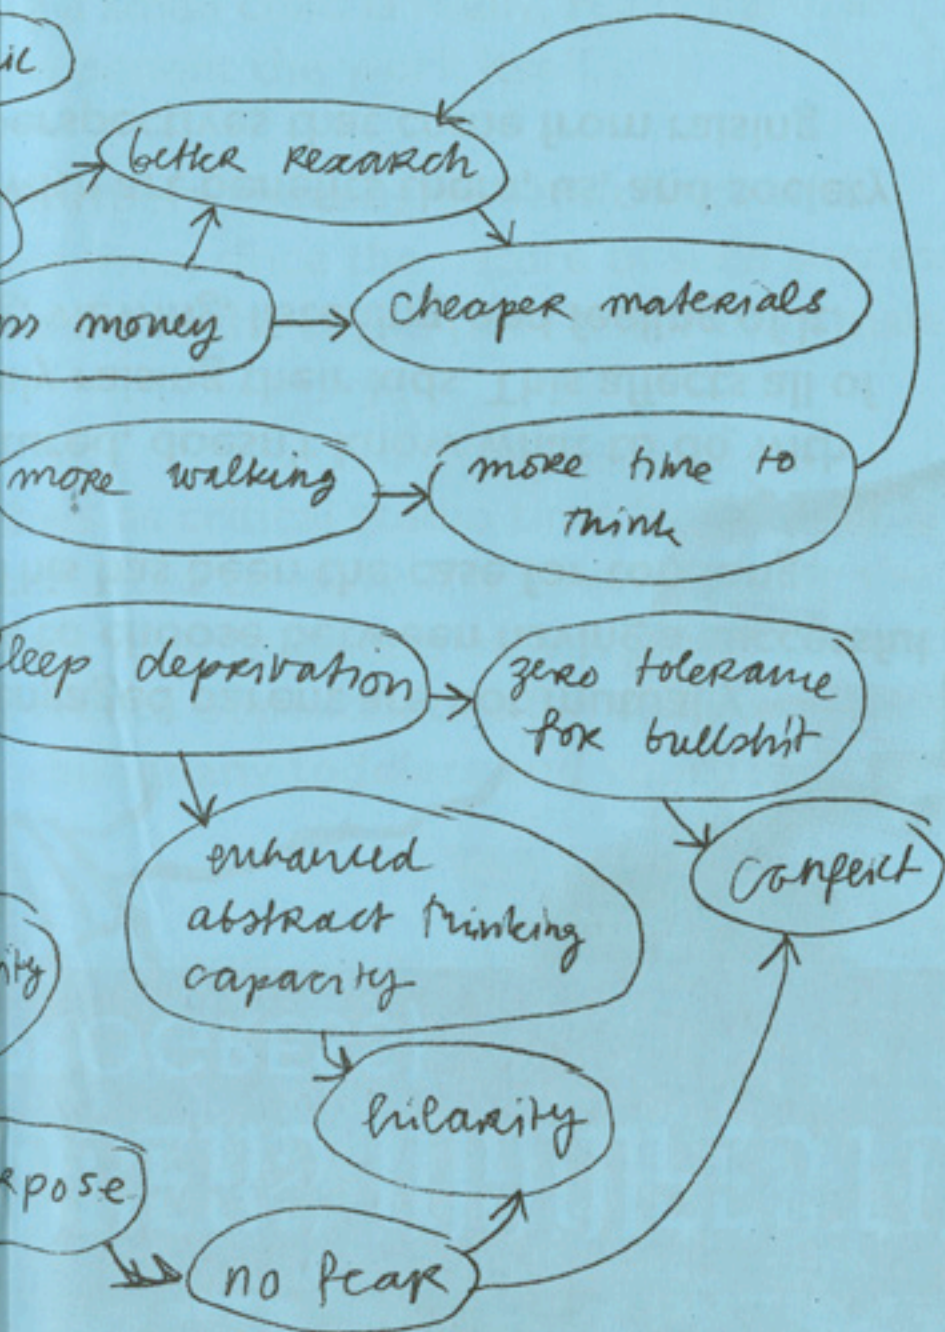 ic
better research
ss money
cheaper materials
more walking
more time to
think
leep deprivation
zero tolerance
for bullshit
enhanced
abstract thinking
capacity
conflict
ity
hilarity
rpose
no fear